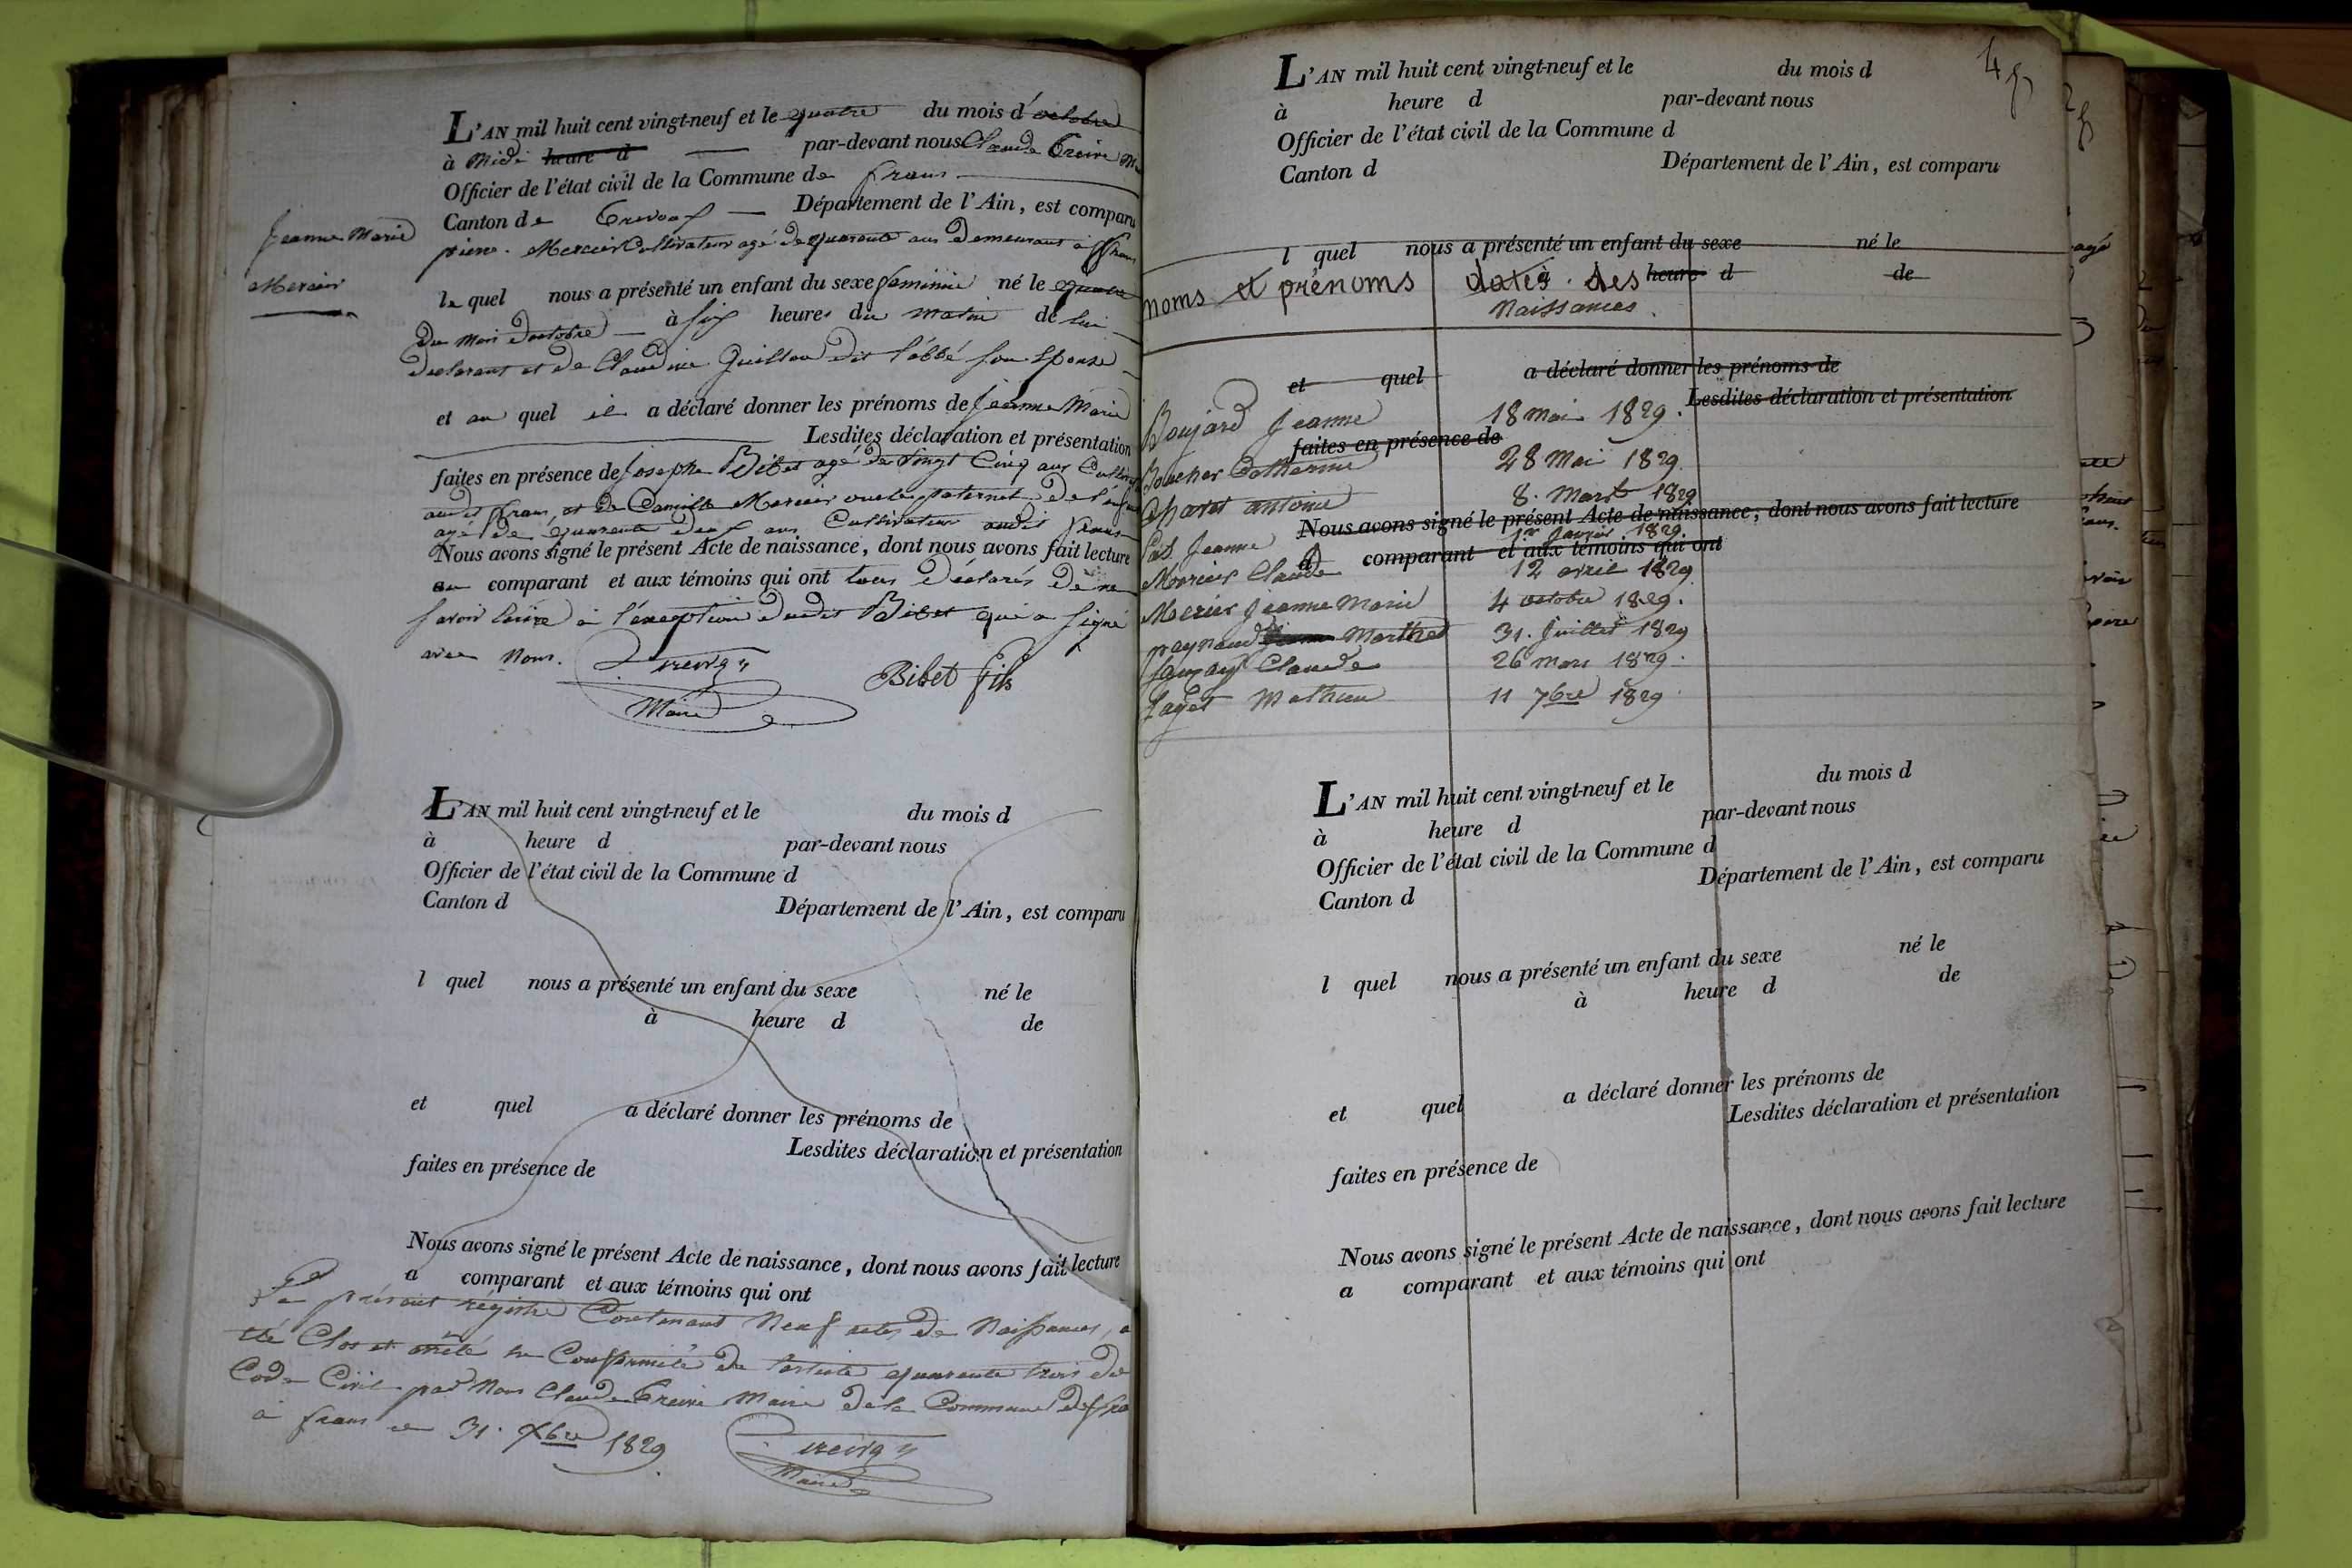 L'AN mil huit cent vingt-neuf et le quatre du mois d'octobre
à Midi heure d par-devant nous Claude Treive
Officier de l'état civil de la Commune de frans
Canton de Trevoux Département de l'Ain, est comparu
pierre Mercier Cultivateur agé de quarante ans Demeurant à frans
Jeanne Marie
Mercier
le quel nous a présenté un enfant du sexe feminin né le quatre
du Mois d'octobre à six heures du matin de lui
declarant et de Claudine Guillon dit l'abbé son Epouse
et au quel il a déclaré donner les prénoms de Jeanne Marie
Lesdites déclaration et présentation
faites en présence de Joseph Bibet agé de vingt Cinq ans
audit frans, et de Camille Mercier oncle paternel de
agé de quarante deux ans Cultivateur audit frans
Nous avons signé le présent Acte de naissance, dont nous avons fait lecture
au comparant et aux témoins qui ont tous déclarés de ne
savoir l'ecrire à l'exception dudit Bibet qui a signé
avec Nous.
Treive
Maire
Bibet fils
L'AN mil huit cent vingt-neuf et le du mois d
à heure d par-devant nous
Officier de l'état civil de la Commune d
Canton d Département de l'Ain, est comparu
l quel nous a présenté un enfant du sexe né le
à heure d de
et quel a déclaré donner les prénoms de
Lesdites déclaration et présentation
faites en présence de
Nous avons signé le présent Acte de naissance, dont nous avons fait lecture
a comparant et aux témoins qui ont
Le présent régistre Contenant Neuf actes de Naissances, a
été Clos et arrêté en Conformité de l'article quarante trois du
Code Civil par Nous Claude Treive Maire de la Commune de
à frans ce 31. Xbre 1829
Treive
Maire
4
L'AN mil huit cent vingt-neuf et le du mois d
à heure d par-devant nous
Officier de l'état civil de la Commune d
Canton d Département de l'Ain, est comparu
l quel nous a présenté un enfant du sexe né le
à heure d de
noms et prénoms dates des
Naissances.
et quel a déclaré donner les prénoms de
Lesdites déclaration et présentation
Boujard Jeanne 18 mai 1829.
faites en présence de
Boucher Catherine 28 Mai 1829
Charet antoine 8. Mars 1829
Nous avons signé le présent Acte de naissance, dont nous avons fait lecture
Jeanne 1er Janvier 1829
a comparant et aux témoins qui ont
Mercier Claude 12 avril 1829
Mercier Jeanne Marie 4 octobre 1829.
paynaud Marthe 31. Juillet 1829
Claude 26 mars 1829.
Mathieu 11 7bre 1829
L'AN mil huit cent vingt-neuf et le du mois d
à heure d par-devant nous
Officier de l'état civil de la Commune d
Canton d Département de l'Ain, est comparu
l quel nous a présenté un enfant du sexe né le
à heure d de
et quel a déclaré donner les prénoms de
Lesdites déclaration et présentation
faites en présence de
Nous avons signé le présent Acte de naissance, dont nous avons fait lecture
a comparant et aux témoins qui ont